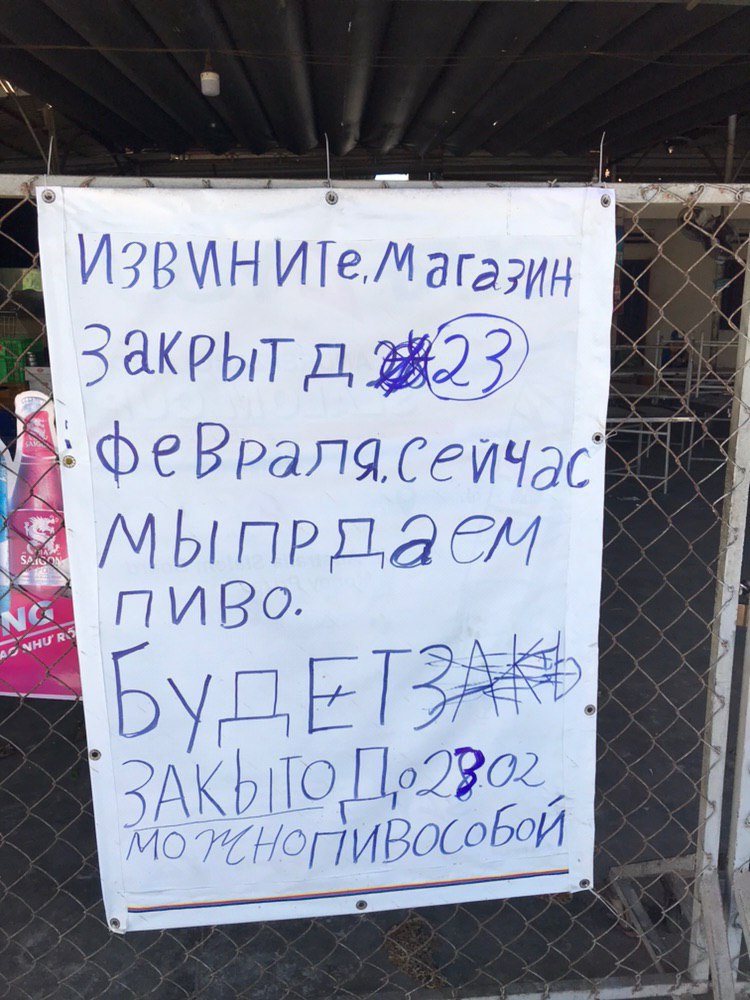 ИЗВИНИТе, Магазин
ЗаКРЫТ Д 23
ФеВРаЛЯ, СеЙЧаС
МЫ ПРДаЕМ
ПИВО.
БУДЕТ
ЗАКЫТО До 23.02
МОЖНО ПИВО СОБОЙ
SAIGON
NG